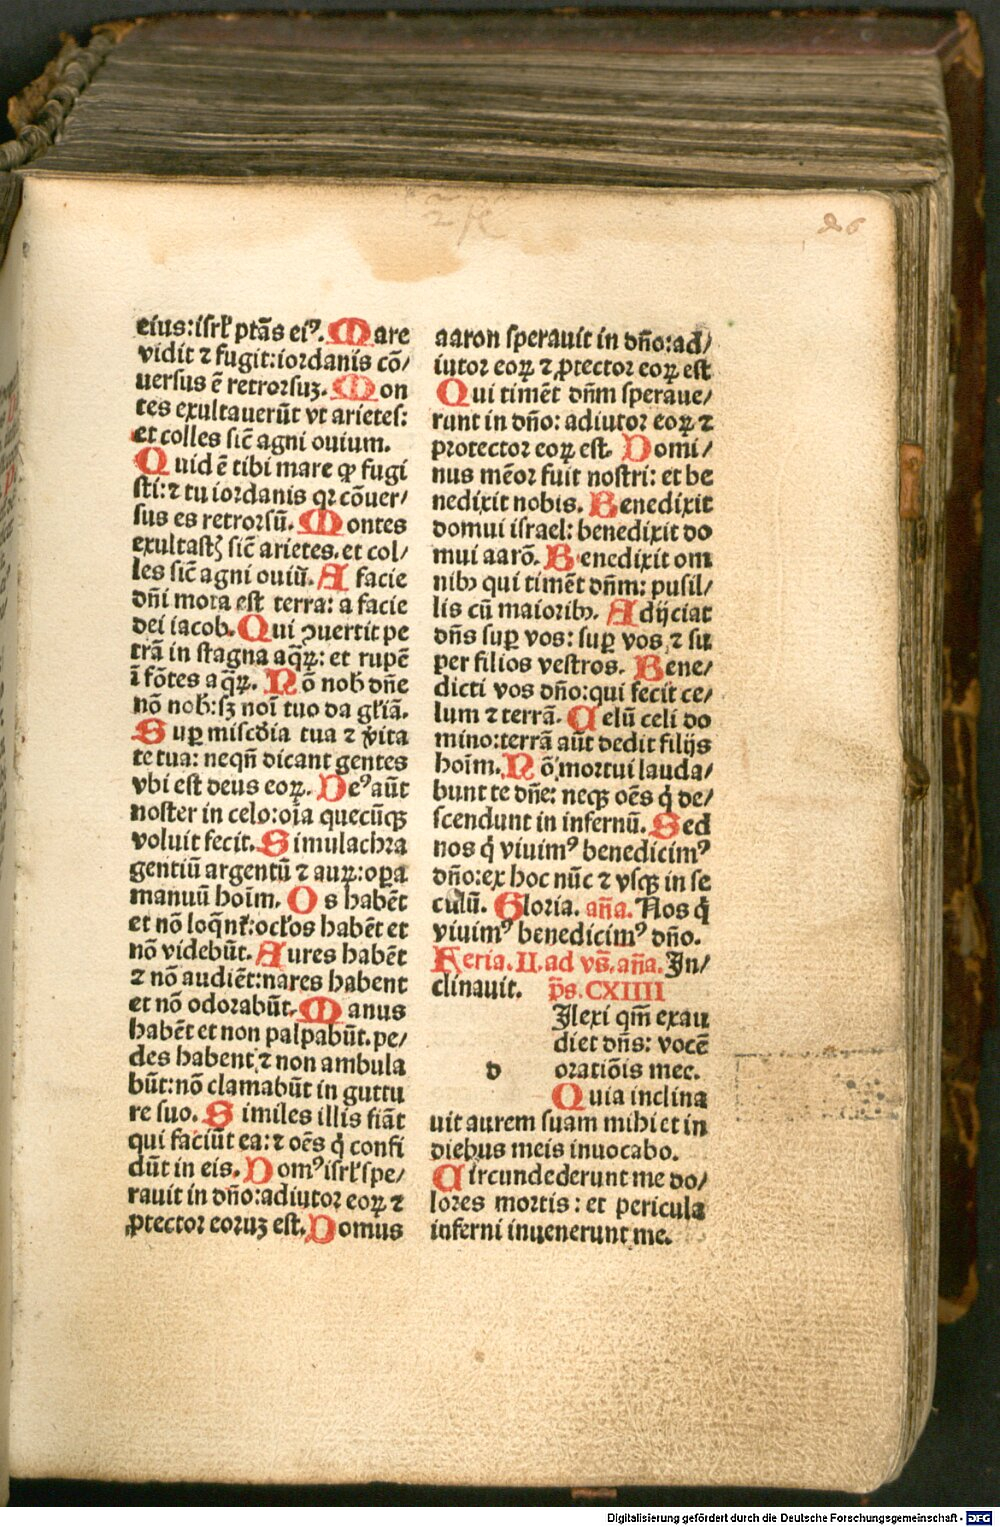 86
eius: isrł ptās ei⁹. Mare
vidit ⁊ fugit: iordanis cō/
uersus ē retrorsuꝫ. Mon
tes exultauerūt vt arietes:
et colles sic̄ agni ouium.
Quid ē tibi mare ꝙ fugi
sti: ⁊ tu iordanis qꝛ cōuer/
sus es retrorsū. Montes
exultastꝫ sic̄ arietes. et col/
les sic̄ agni ouiū. A facie
dn̄i mota est terra: a facie
dei iacob. Qui ꝯuertit pe
trā in stagna aq̄ꝝ: et rupē
ī fōtes aq̄ꝝ. Nō nob̄ dn̄e
nō nob̄: sꝫ noī tuo da głiā.
Suꝑ misc̄dia tua ⁊ v̓ita
te tua: neqn̄ dicant gentes
vbi est deus eoꝝ. De⁹ aūt
noster in celo: oīa quecūqꝫ
voluit fecit. Simulachra
gentiū argentū ⁊ auꝝ: oꝑa
manuū hoīm. Os habēt
et nō loq̄nt᷑: ocłos habēt et
nō videbūt. Aures habēt
⁊ nō audiēt: nares habent
et nō odorabūt. Manus
habēt et non palpabūt. pe/
des habent ⁊ non ambula
būt: nō clamabūt in guttu
re suo. Similes illis fiāt
qui faciūt ea: ⁊ oēs q̇ confi
dūt in eis. Dom⁹ isrł spe/
rauit in dn̄o: adiutor eoꝝ ⁊
ꝓtector eoruꝫ est. Domus
aaron sperauit in dn̄o: ad/
iutor eoꝝ ⁊ ꝓtector eoꝝ est
Qui timēt dn̄m speraue/
runt in dn̄o: adiutor eoꝝ ⁊
protector eoꝝ est. Domi/
nus mēor fuit nostri: et be
nedixit nobis. Benedixit
domui israel: benedixit do
mui aarō. Benedixit om
nibꝫ qui timēt dn̄m: pusil/
lis cū maioribꝫ. Adijciat
dn̄s suꝑ vos: suꝑ vos ⁊ su
per filios vestros. Bene/
dicti vos dn̄o: qui fecit ce/
lum ⁊ terrā. Celū celi do
mino: terrā aūt dedit filijs
hoīm. Nō mortui lauda/
bunt te dn̄e: neqꝫ oēs q̇ de/
scendunt in infernū. Sed
nos q̇ viuim⁹ benedicim⁹
dn̄o: ex hoc nūc ⁊ vsqꝫ in se
culū. Gloria. an̄a. Nos q̇
viuim⁹ benedicim⁹ dn̄o.
Feria. II. ad vs̄. an̄a. In/
clinauit. ps̄. CXIIII
Ilexi qm̄ exau
diet dn̄s: vocē
d oratiōis mee.
Quia inclina
uit aurem suam mihi et in
diebus meis inuocabo.
Circundederunt me do/
lores mortis: et pericula
inferni inuenerunt me.
Digitalisierung gefördert durch die Deutsche Forschungsgemeinschaft - DFG